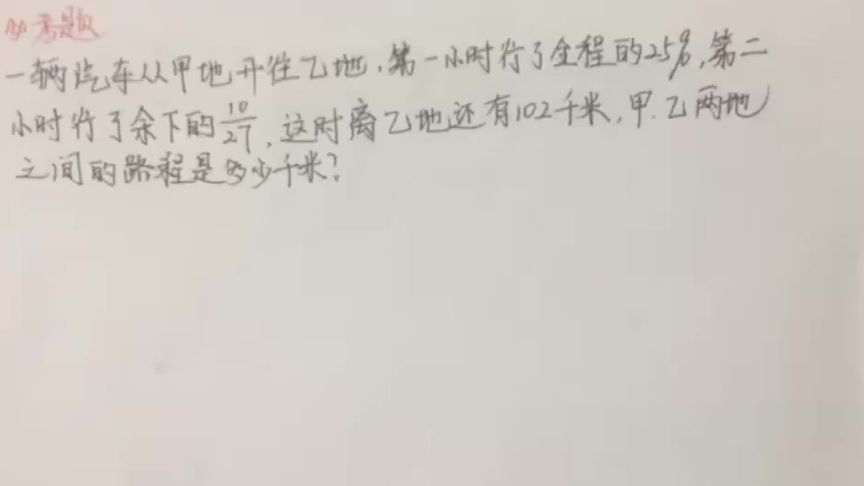 必考题
一辆汽车从甲地开往乙地，第一小时行了全程的25%，第二
小时行了余下的10/27，这时离乙地还有102千米，甲.乙两地
之间的路程是多少千米？